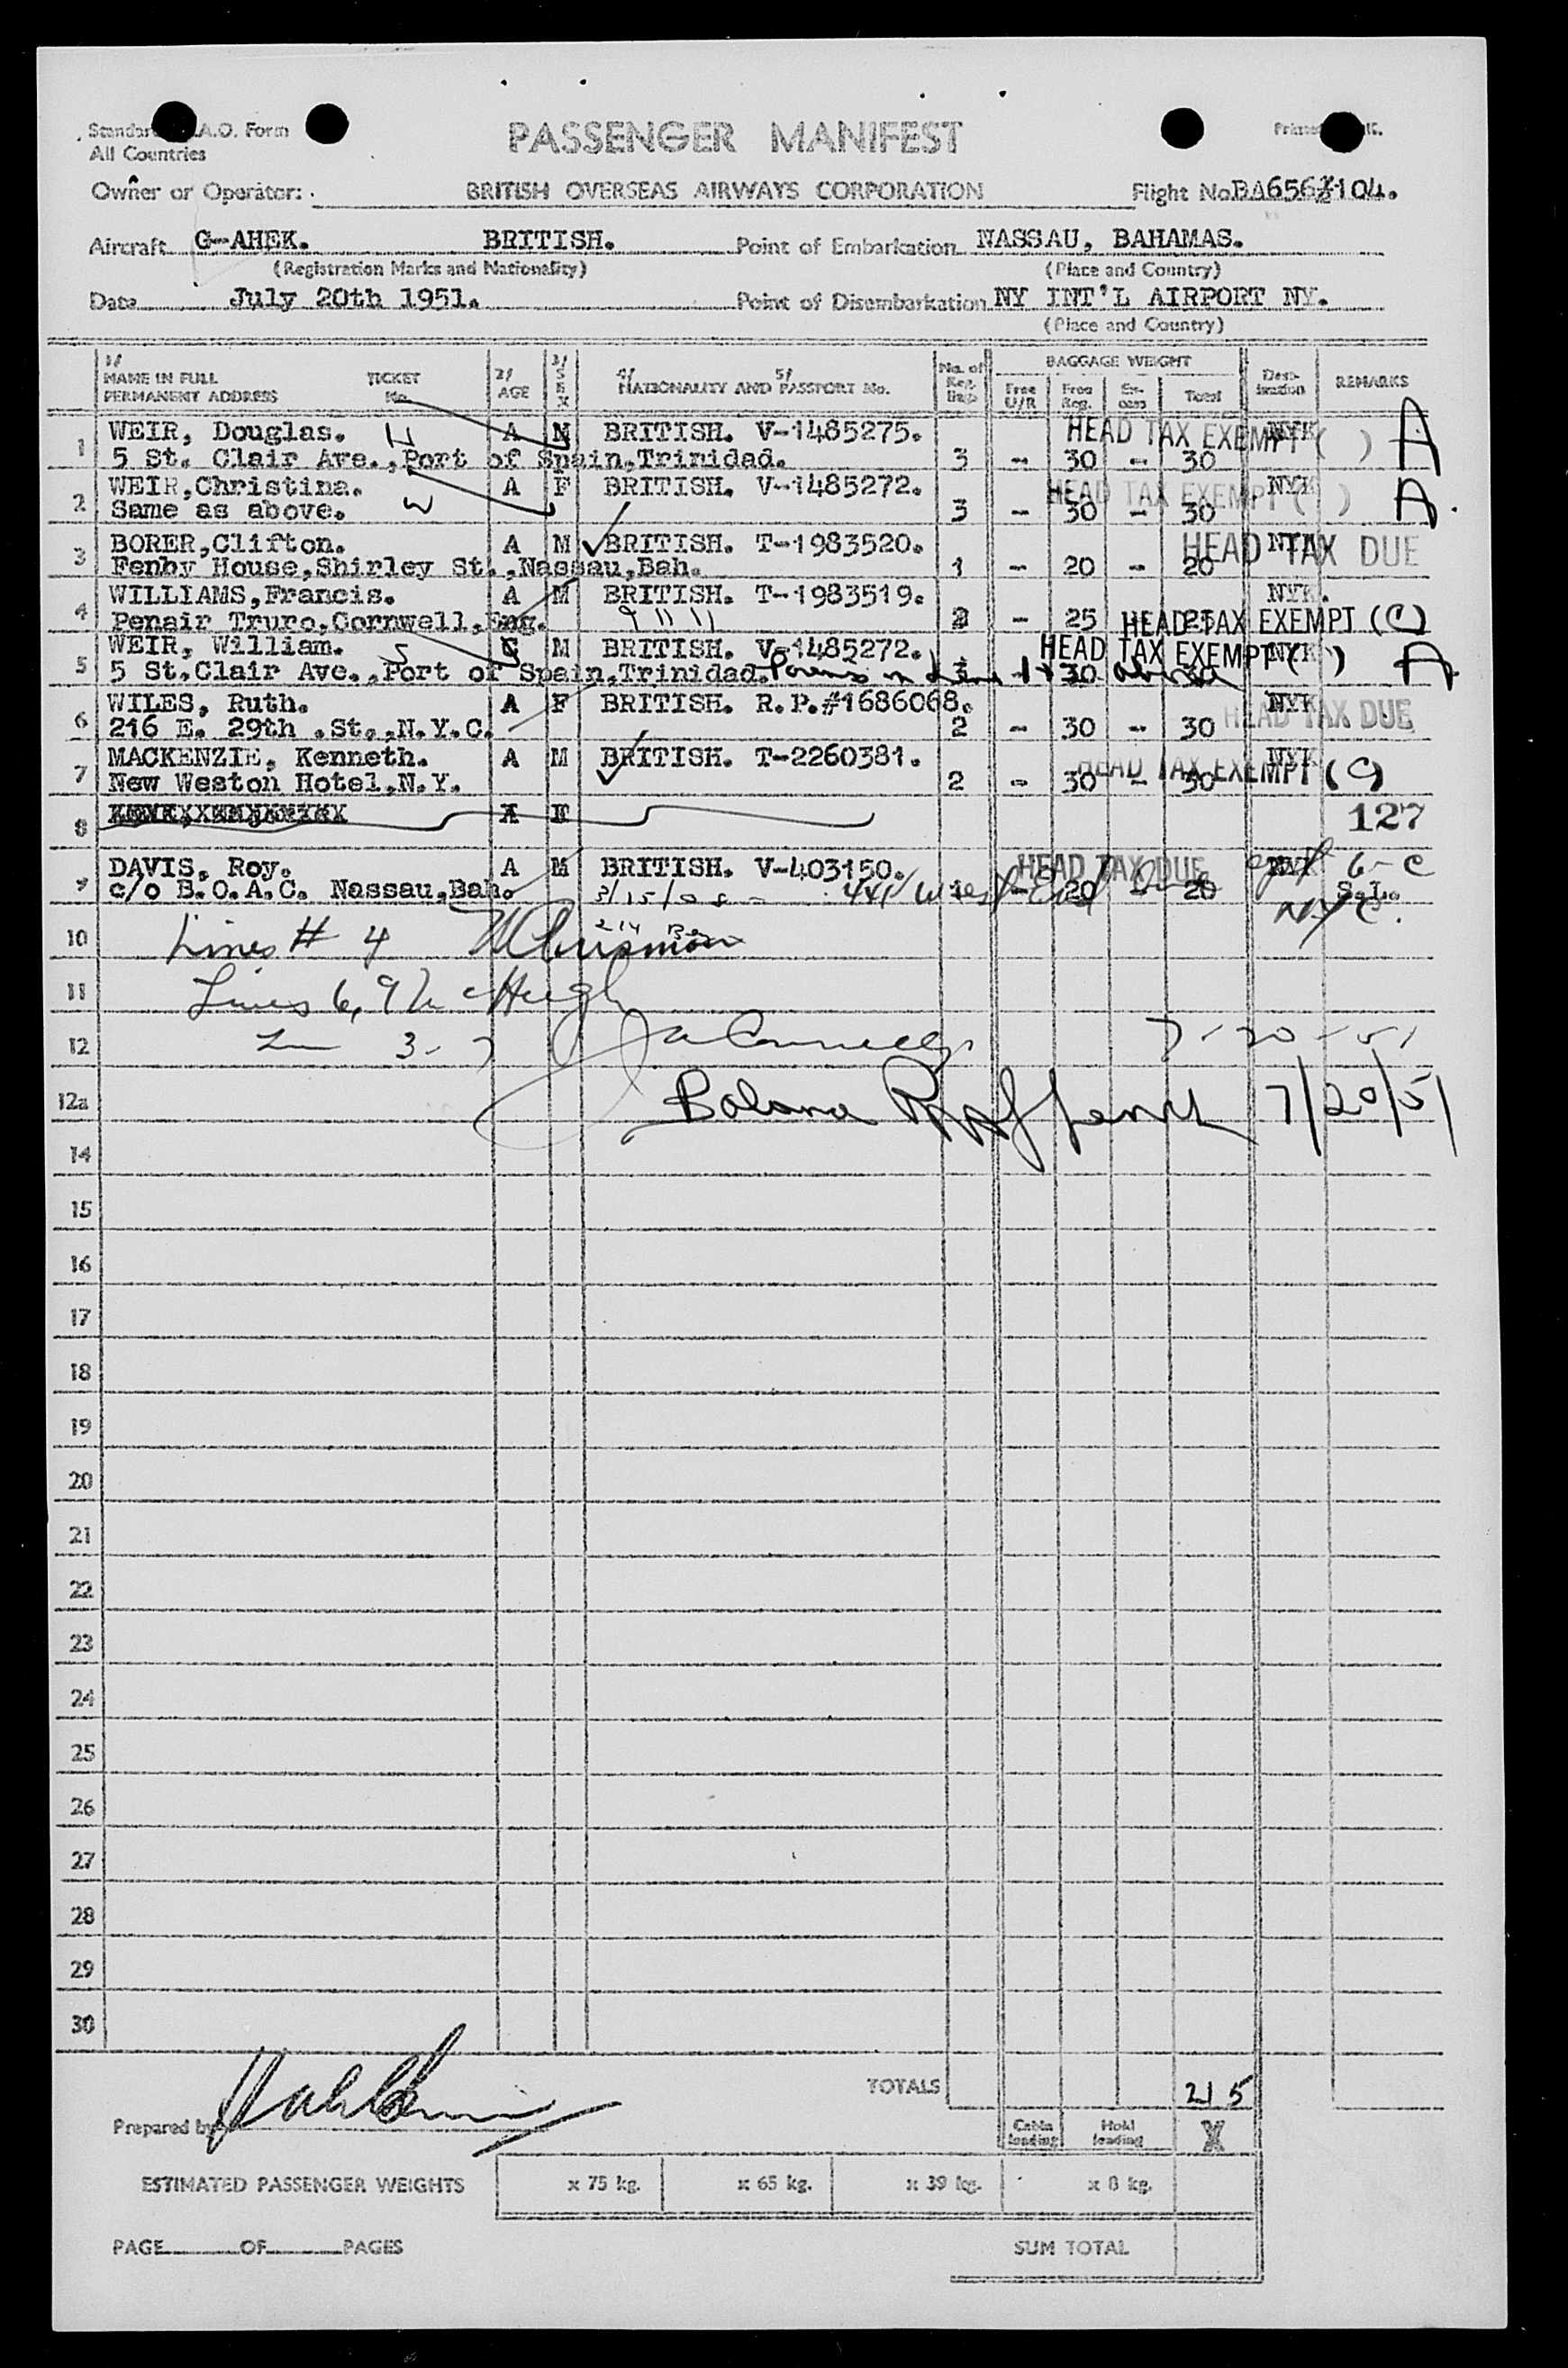 PASSENGER MANIFEST
All Countries
Owner or Operator: BRITISH OVERSEAS AIRWAYS CORPORATION Flight No.
Aircraft G-AHEK. BRITISH. Point of Embarkation NASSAU, BAHAMAS.
(Registration Marks and Nationality) (Place and Country)
Date July 20th 1951. Point of Disembarkation NY INT'L AIRPORT NY.
(Place and Country)
1/ NAME IN FULL PERMANENT ADDRESS TICKET No. 2/ AGE 3/ SEX 4/ 5/ NATIONALITY AND PASSPORT No. No. of Reg. BAGGAGE WEIGHT Free U/R Free Reg. Ex-cess Total Desti-nation REMARKS
1 WEIR, Douglas. H A M BRITISH. V-1485275. HEAD TAX EXEMPT ( ) NYK A
5 St. Clair Ave.,Port of Spain,Trinidad. 3 - 30 - 30
2 WEIR,Christina. W A F BRITISH. V-1485272. HEAD TAX EXEMPT ( ) NYK A.
Same as above. 3 - 30 - 30
3 BORER,Clifton. A M BRITISH. T-1983520. HEAD TAX DUE NYK
Fenby House,Shirley St.,Nassau,Bah. 1 - 20 - 20
4 WILLIAMS,Francis. A M BRITISH. T-1983519. NYK.
Penair Truro,Cornwall,Eng. 2 - 25 25 HEAD TAX EXEMPT (C)
5 WEIR, William. S C M BRITISH. V-1485272. HEAD TAX EXEMPT ( ) NYK A
5 St.Clair Ave.,Port of Spain,Trinidad. 30 above 30
6 WILES, Ruth. A F BRITISH. R.P.#1686068. NYK
216 E. 29th .St.,N.Y.C. 2 - 30 - 30 HEAD TAX DUE
7 MACKENZIE, Kenneth. A M BRITISH. T-2260381. NYK
New Weston Hotel,N.Y. 2 - 30 - 30 HEAD TAX EXEMPT (C)
8 A F 127
9 DAVIS, Roy. A M BRITISH. V-403150. HEAD TAX DUE 6-C
c/o B.O.A.C. Nassau,Bah. 1 - 20 - 20 S.L.
NYC.
10 Lines # 4
11 Lines 6, 9 McHugh
12 3-7 7-20-51
12a 7/20/51
14
15
16
17
18
19
20
21
22
23
24
25
26
27
28
29
30
TOTALS 215
Prepared by
Cabin loading Hold loading X
ESTIMATED PASSENGER WEIGHTS x 75 kg. x 65 kg. x 39 kg. x 8 kg.
PAGE OF PAGES SUM TOTAL